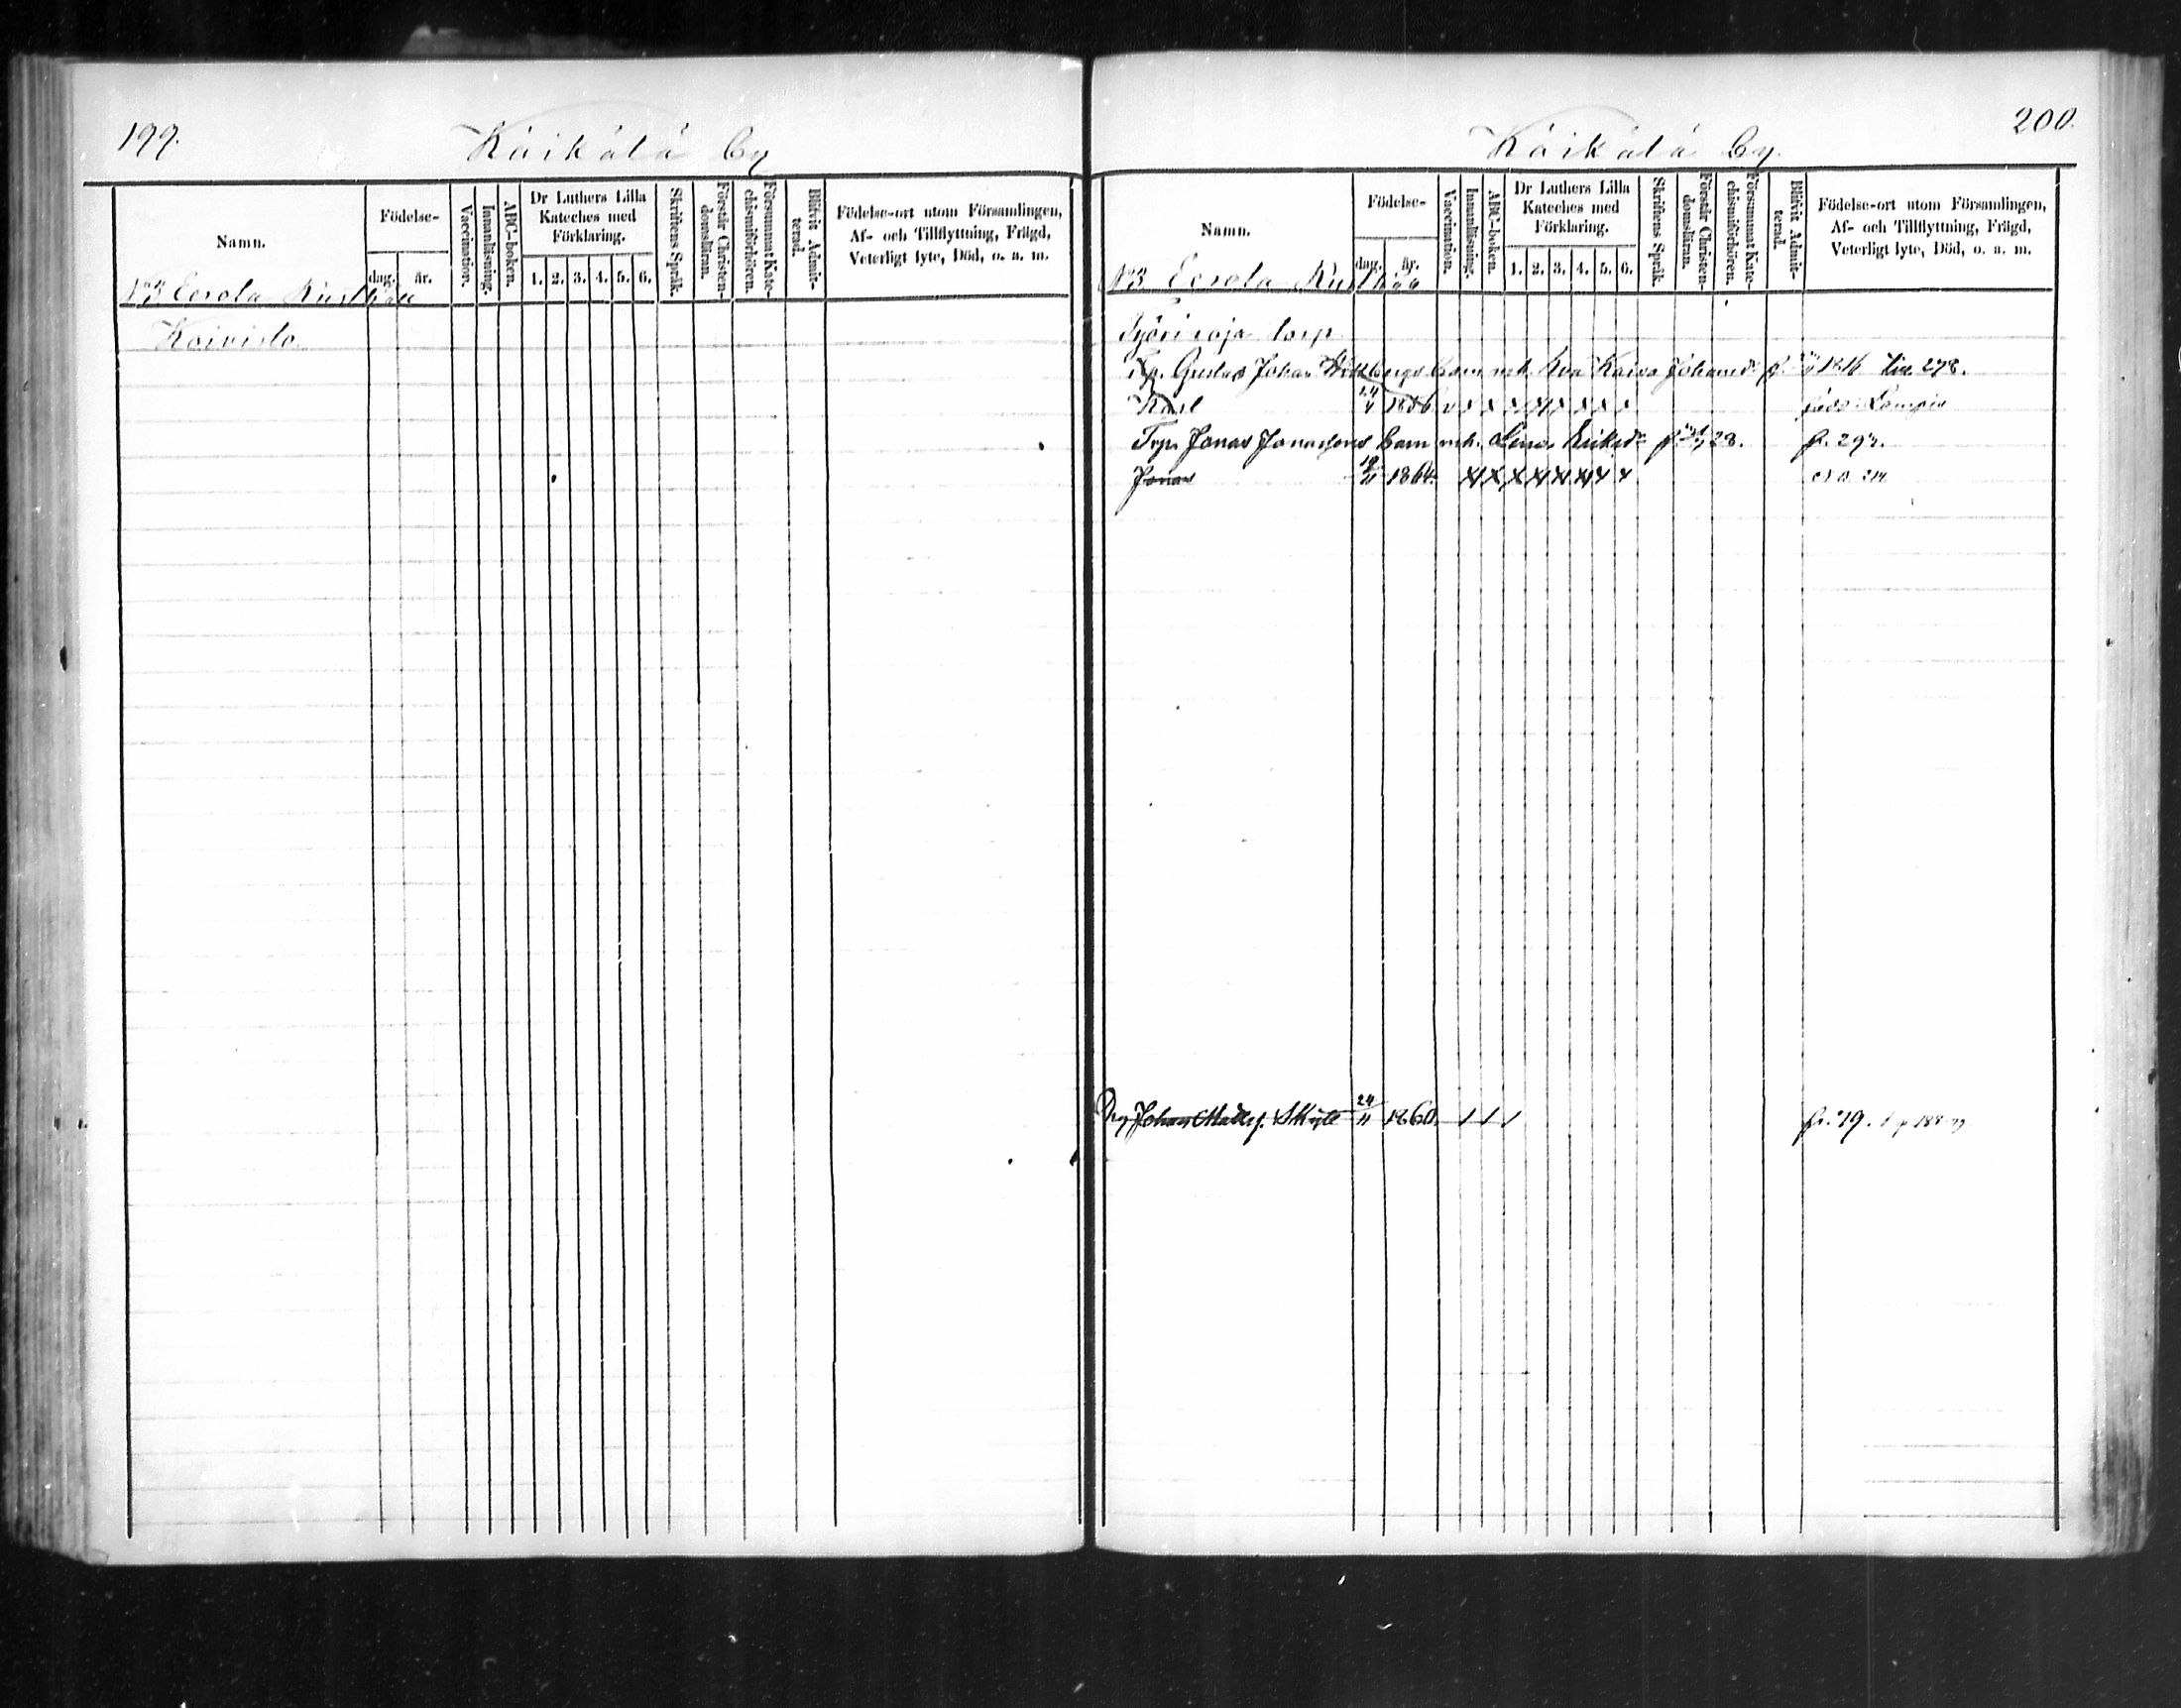 199.
Käikälä by
Namn.
Födelse-
dag.
år.
Vaccination.
Innanläsning.
ABC-boken.
Dr Luthers Lilla
Kateches med
Förklaring.
1. 2. 3. 4. 5. 6.
Skriftens Språk.
Förstår Christen-
domsläran.
Försummat Kate-
chismiförhören.
Blifvit Admit-
terad.
Födelse-ort utom Församlingen,
Af- och Tillflyttning, Frägd,
Veterligt lyte, Död, o. a. m.
No 3 Eerola Rusthåll
Koivisto
200.
Käikälä by.
Namn.
Födelse-
dag.
år.
Vaccination.
Innanläsning.
ABC-boken.
Dr Luthers Lilla
Kateches med
Förklaring.
1. 2. 3. 4. 5. 6.
Skriftens Språk.
Förstår Christen-
domsläran.
Försummat Kate-
chismiförhören.
Blifvit Admit-
terad.
Födelse-ort utom Församlingen,
Af- och Tillflyttning, Frägd,
Veterligt lyte, Död, o. a. m.
No 3 Eerola
torp
Gustaf Johan barn m. Eva Kaisa Johansd. 1816 278.
Karl
Trp. Jonas Jonassons barn m. Lena Eriksd. 28.
Jonas 1864.
Drg Johan 24/11 1860. fr. 79.